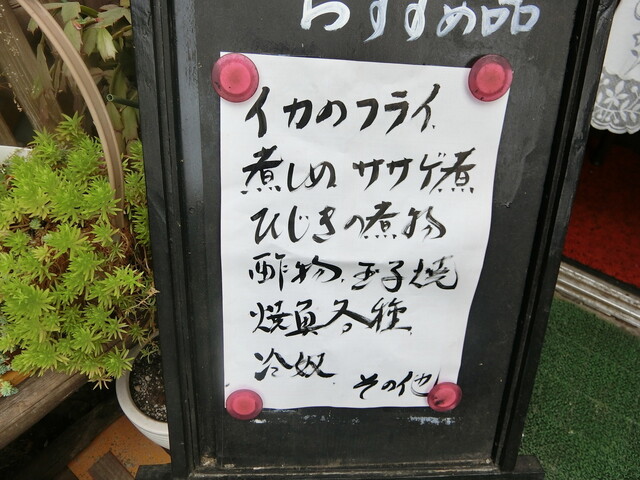 おすすめ品
イカのフライ
煮しめ ササゲ煮
ひじきの煮物
酢物、玉子焼
焼魚各種
冷奴
その他